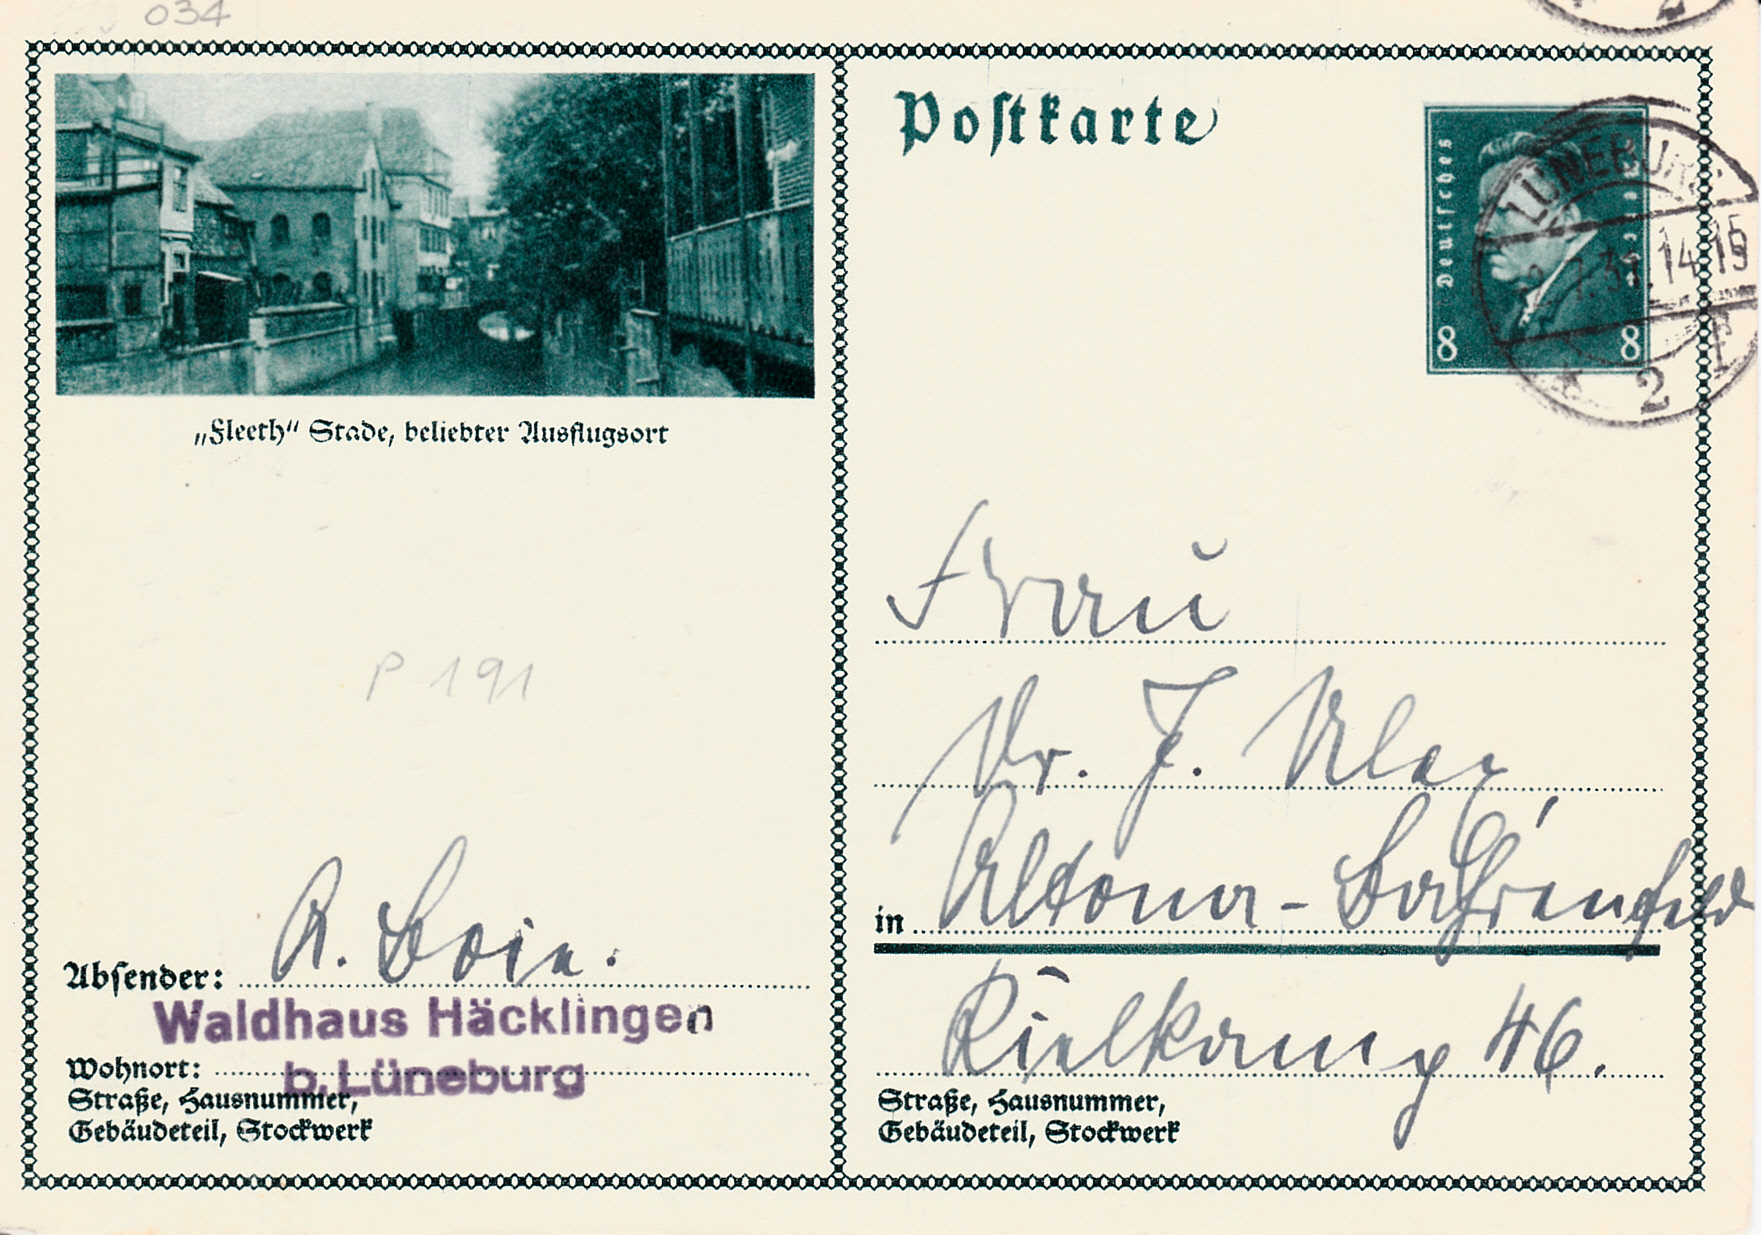 034
"Fleeth" Stade, beliebter Ausflugsort
P 191
Absender: R. Boie.
Waldhaus Häcklingen
Wohnort: b. Lüneburg
Straße, Hausnummer,
Gebäudeteil, Stockwerk
Postkarte
Deutsches
8 8
LÜNEBURG
31.14-15
* 2
Frau
Dr. J. Ulex
in Altona-Bahrenfeld
Rielkamp 46.
Straße, Hausnummer,
Gebäudeteil, Stockwerk